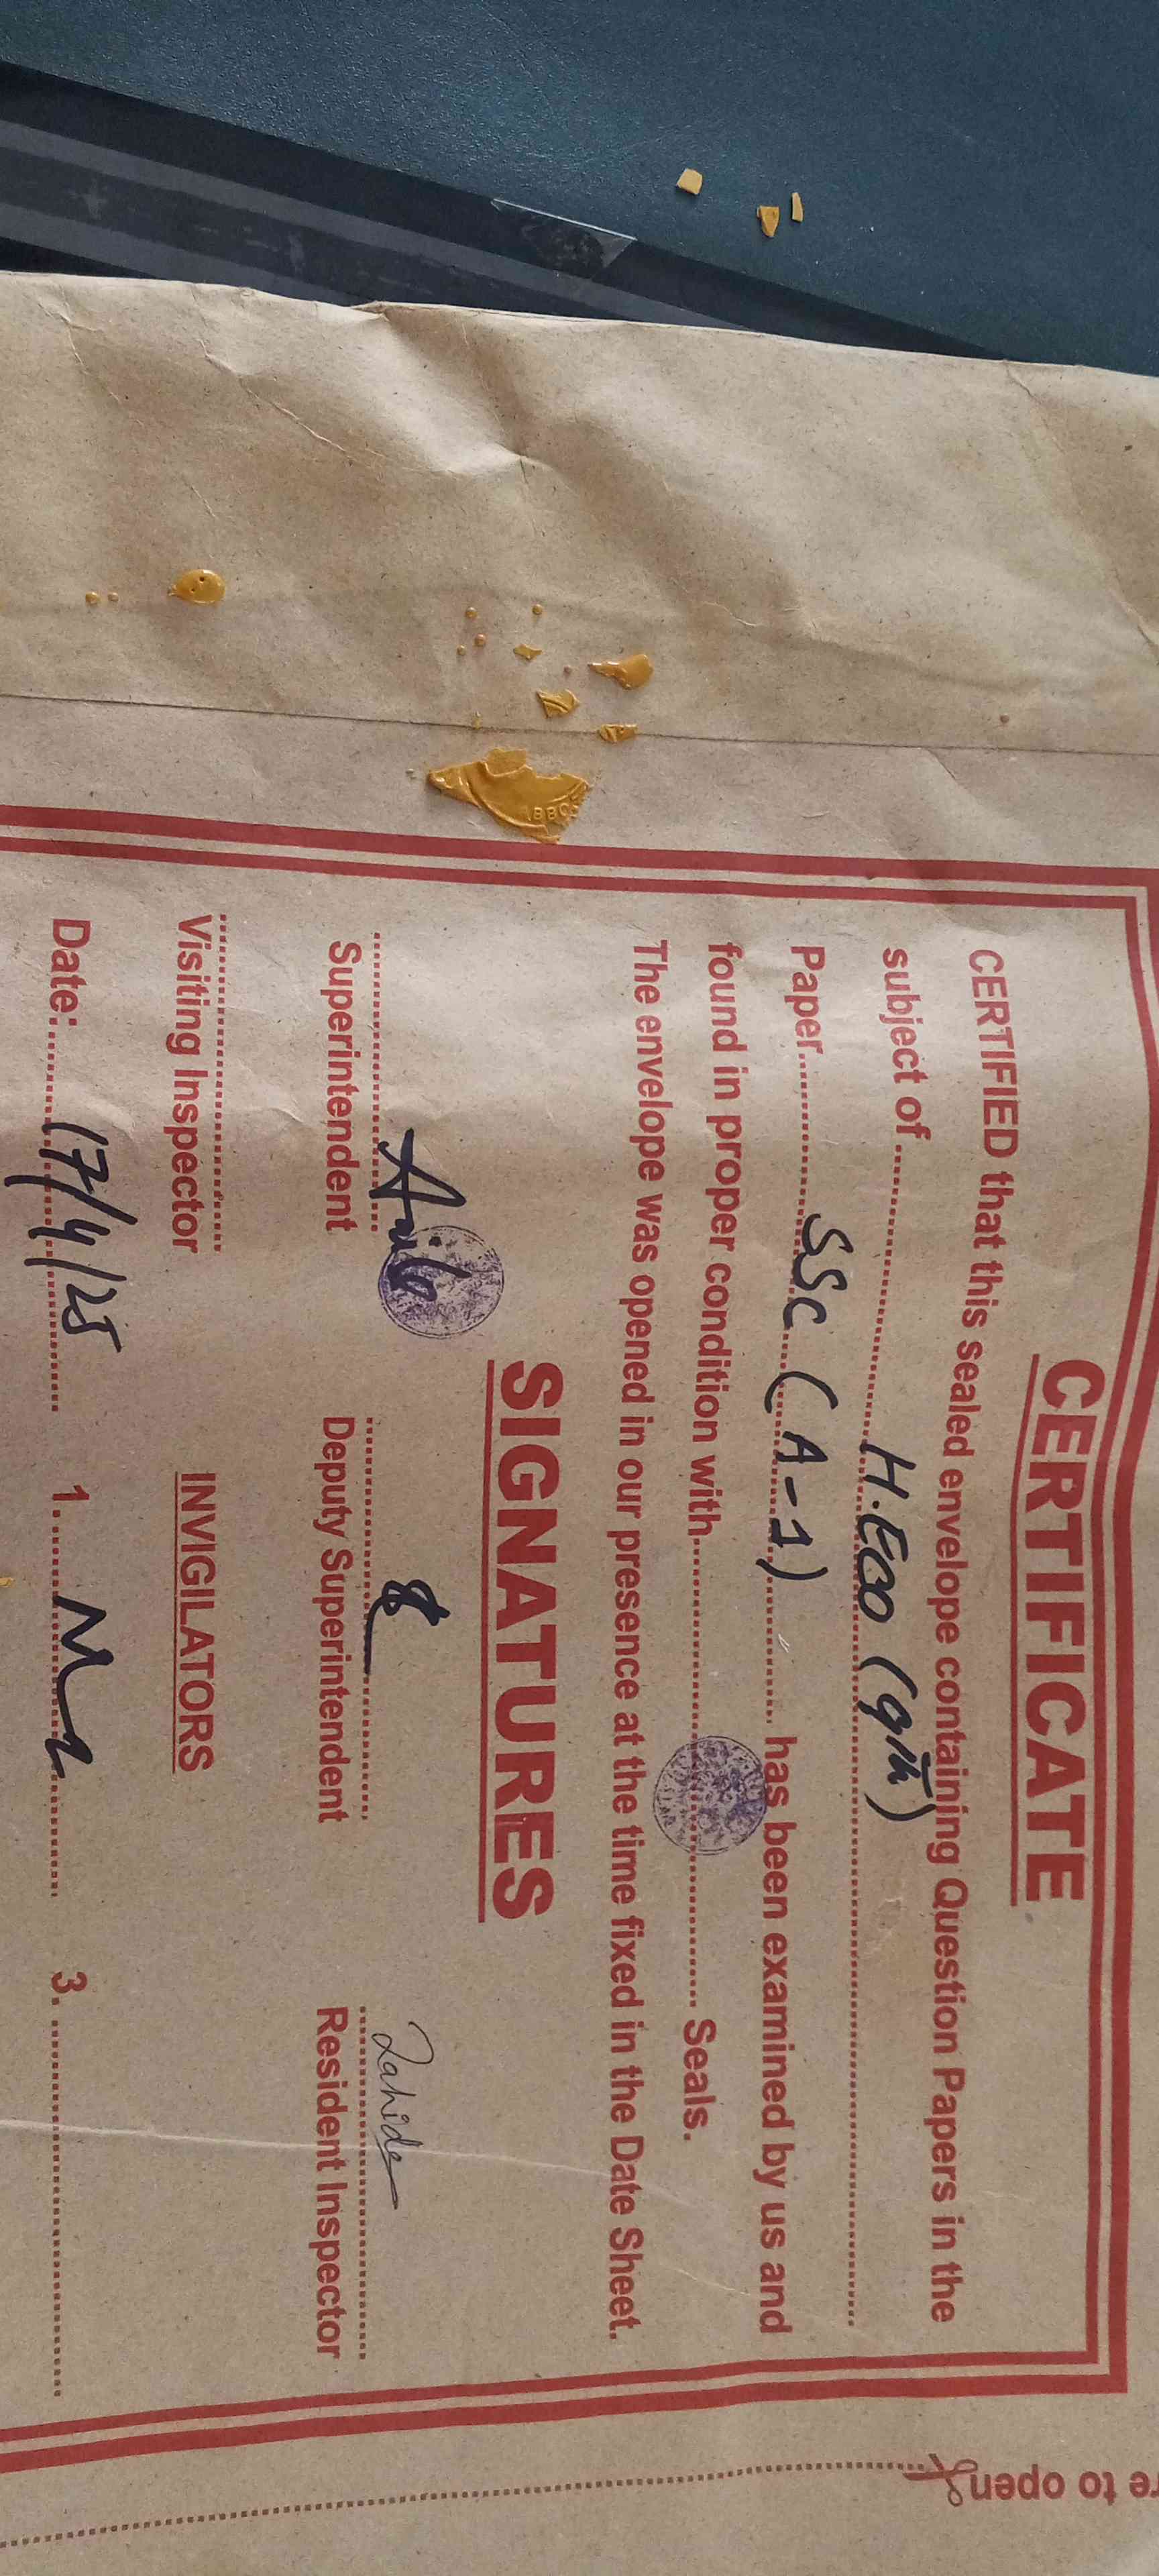 CERTIFICATE
CERTIFIED that this sealed envelope containing Question Papers in the
subject of .......... H.Eco (9th) ..........
Paper.......... SSC (A-1) .......... has been examined by us and
found in proper condition with.................... Seals.
The envelope was opened in our presence at the time fixed in the Date Sheet.
SIGNATURES
Superintendent Deputy Superintendent Resident Inspector
Visiting Inspector INVIGILATORS
Date: 17/4/25 1. 3.
re to open